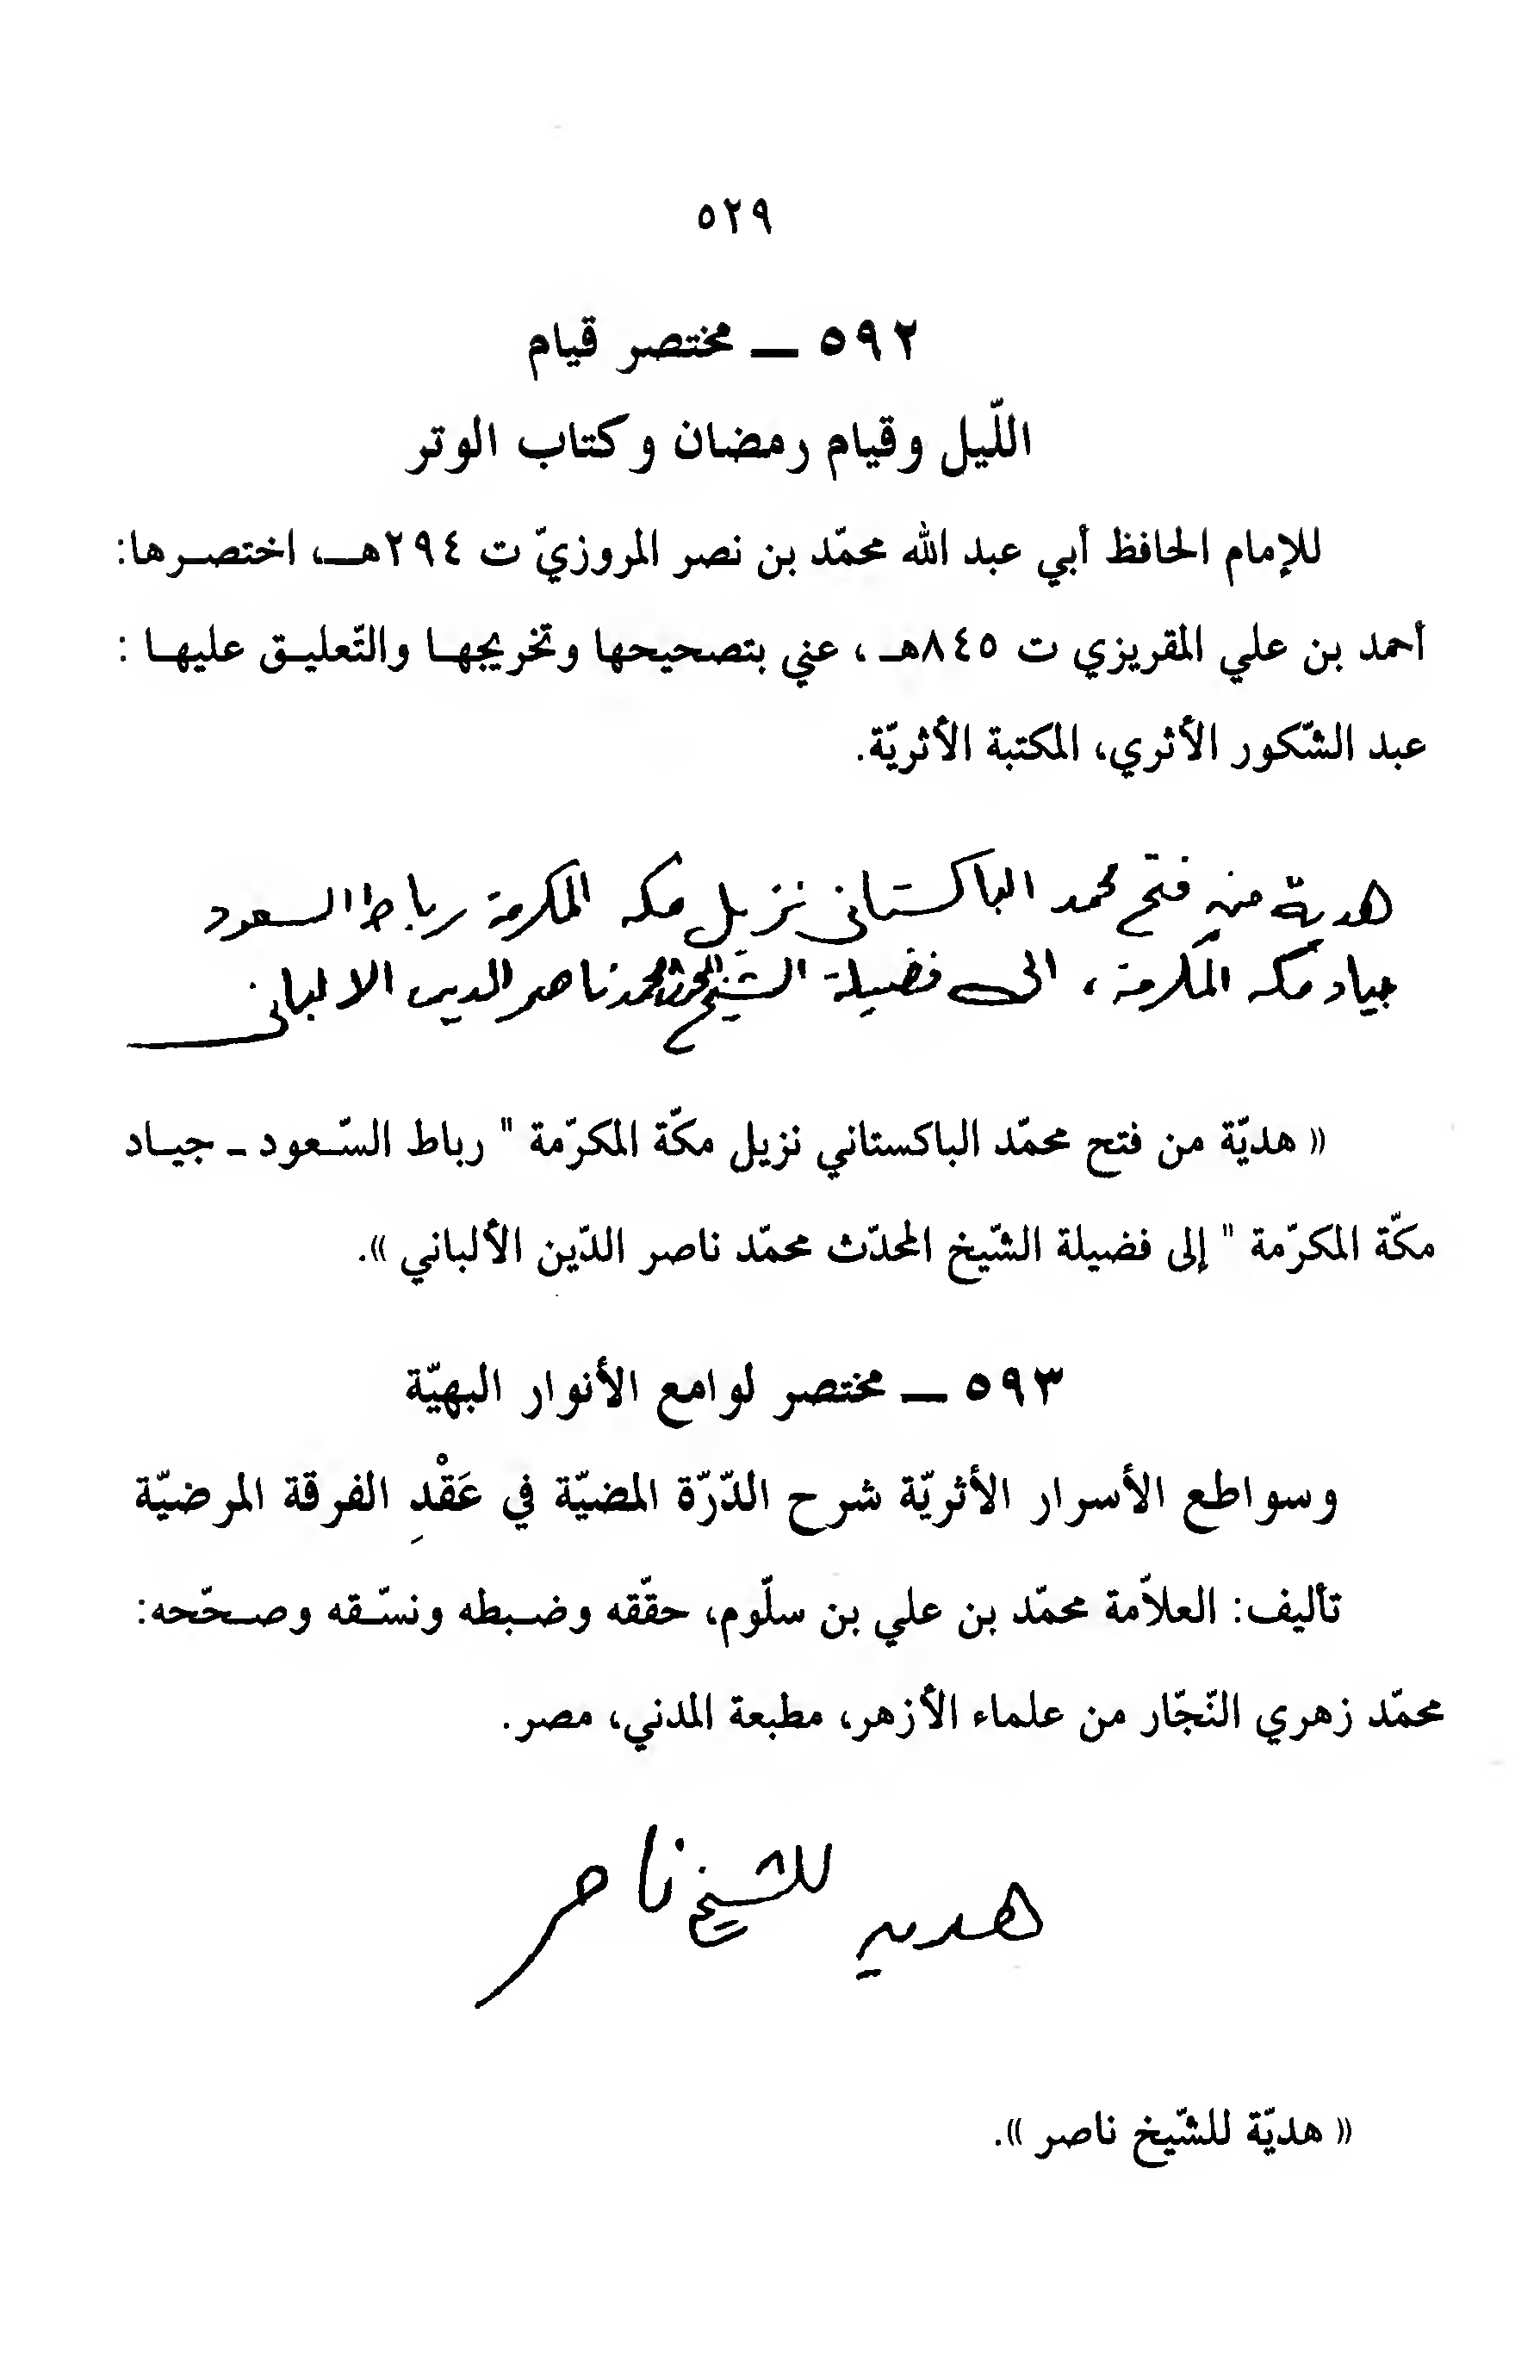 ٥٢٩
٥٩٢ ــ مختصر قيام
اللّيل وقيام رمضان وكتاب الوتر
للإمام الحافظ أبي عبد الله محمّد بن نصر المروزيّ ت ٢٩٤هـ، اختصرها:
أحمد بن علي المقريزي ت ٨٤٥هـ ، عني بتصحيحها وتخريجها والتّعليق عليها :
عبد الشّكور الأثري، المكتبة الأثريّة.
هدية من فتح محمد الباكستاني نزيل مكه المكرمة رباط السعود
جياد مكه المكرمة ، الى فضيلة الشيخ المحدث محمد ناصر الدين الالباني
« هديّة من فتح محمّد الباكستاني نزيل مكّة المكرّمة " رباط السّعود ـ جياد
مكّة المكرّمة " إلى فضيلة الشّيخ المحدّث محمّد ناصر الدّين الألباني ».
٥٩٣ ــ مختصر لوامع الأنوار البهيّة
وسواطع الأسرار الأثريّة شرح الدّرّة المضيّة في عَقْدِ الفرقة المرضيّة
تأليف: العلاّمة محمّد بن علي بن سلّوم، حقّقه وضبطه ونسّقه وصحّحه:
محمّد زهري النّجّار من علماء الأزهر، مطبعة المدني، مصر.
هديه للشيخ ناصر
« هديّة للشّيخ ناصر ».